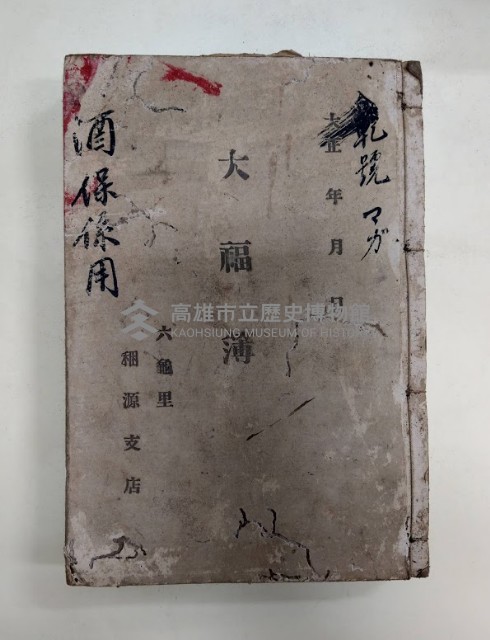 乾號 マガ
大正 年 月 日
大福簿
六龜里
栩源支店
酒保係用
高雄市立歷史博物館
KAOHSIUNG MUSEUM OF HISTORY